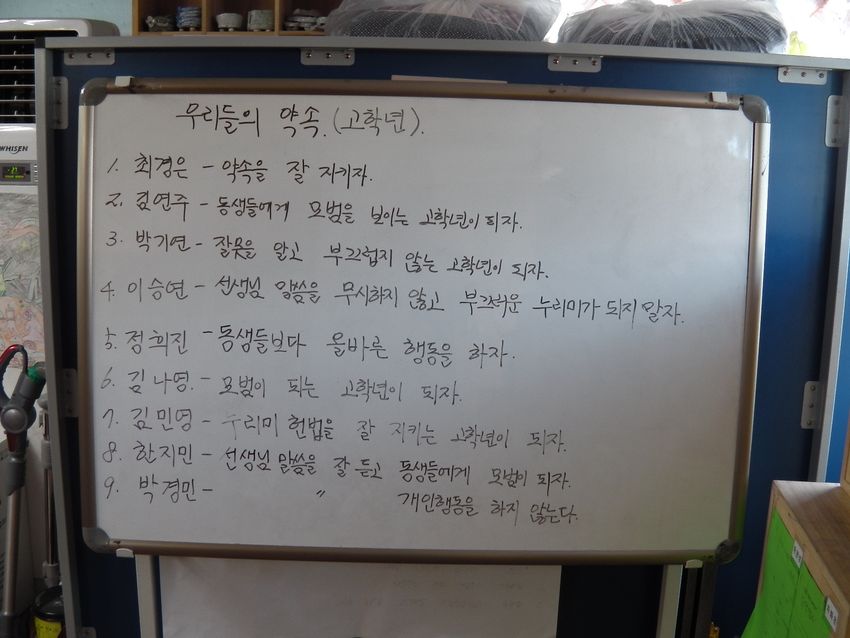 WHISEN
우리들의 약속. (고학년).
1. 최경은 - 약속을 잘 지키자.
2. 김연주 - 동생들에게 모범을 보이는 고학년이 되자.
3. 박기연 - 잘못을 알고 부끄럽지 않는 고학년이 되자.
4. 이승연 - 선생님 말씀을 무시하지 않고 부끄러운 누리미가 되지 말자.
5. 정희진 - 동생들보다 올바른 행동을 하자.
6. 김나영. - 모범이 되는 고학년이 되자.
7. 김민영 - 누리미 헌법을 잘 지키는 고학년이 되자.
8. 한지민 - 선생님 말씀을 잘 듣고 동생들에게 모범이 되자.
9. 박경민 - 〃 개인행동을 하지 않는다.